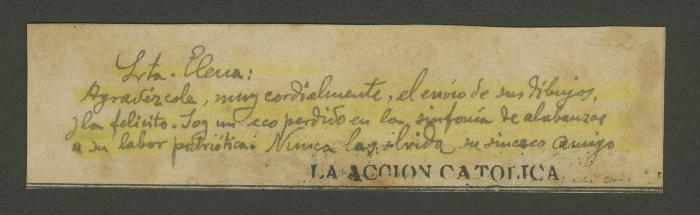 Srta. Elena:
Agradézcole, muy cordialmente, el envío de sus dibujos,
y la felicito. Soy un eco perdido en la sinfonía de alabanzas
a su labor patriótica. Nunca la olvida su sincero amigo
LA ACCION CATOLICA